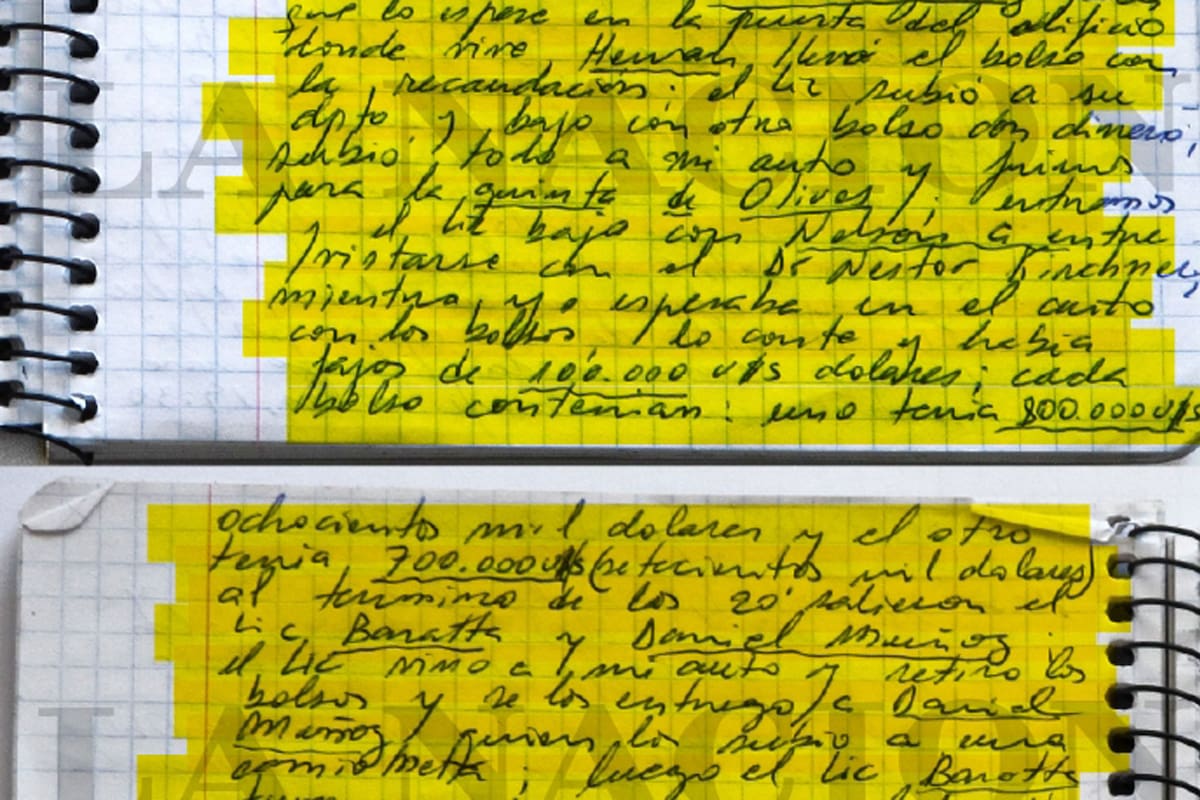 que lo espere en la puerta del edificio
donde vive Hernan, llevó el bolso con
la recaudación; el Lic subió a su
dpto y bajo con otro bolso con dinero,
subió todo a mi auto y fuimos
para la quinta de Olivos; entramos
y el Lic bajo con Nelson a entre
vistarse con el Dr Nestor Kirchner,
mientras yo esperaba en el auto
con los bolsos, lo conte y habia
fajos de 100.000 u$s dolares; cada
bolso contenian: uno tenia 800.000 u$s
ochocientos mil dolares y el otro
tenia 700.000 u$s (setecientos mil dolares)
al termino de los 20' salieron el
Lic Baratta y Daniel Muñoz
el Lic vino a mi auto y retiro los
bolsos y se los entrego a Daniel
Muñoz, quien los subio a una
camioneta; luego el Lic Baratta
LA NACION
LA NACION